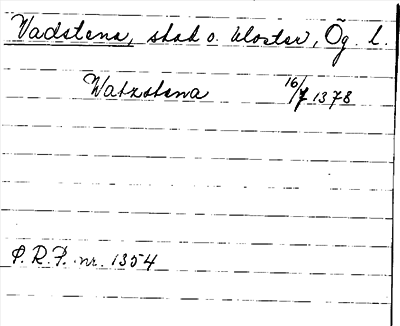 Vadstena, stad o. kloster, Ög. l.
Watzstena 16/7 1378
P.R.P. nr. 1354